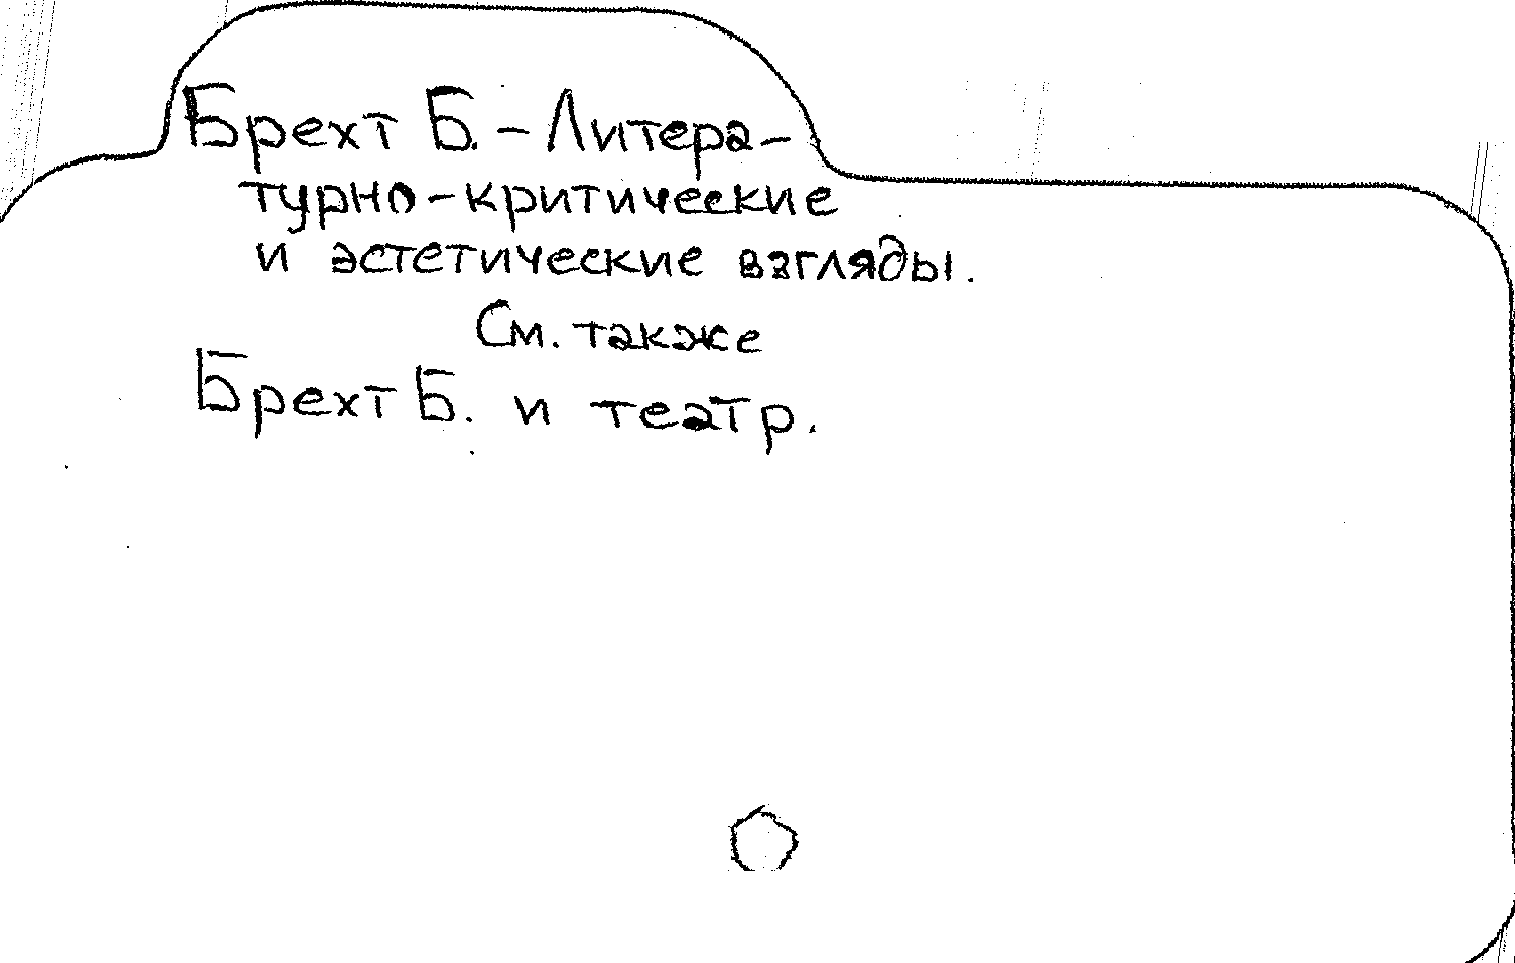 Брехт Б. – Литера-
турно-критические
и эстетические взгляды.
См. также
Брехт Б. и театр.